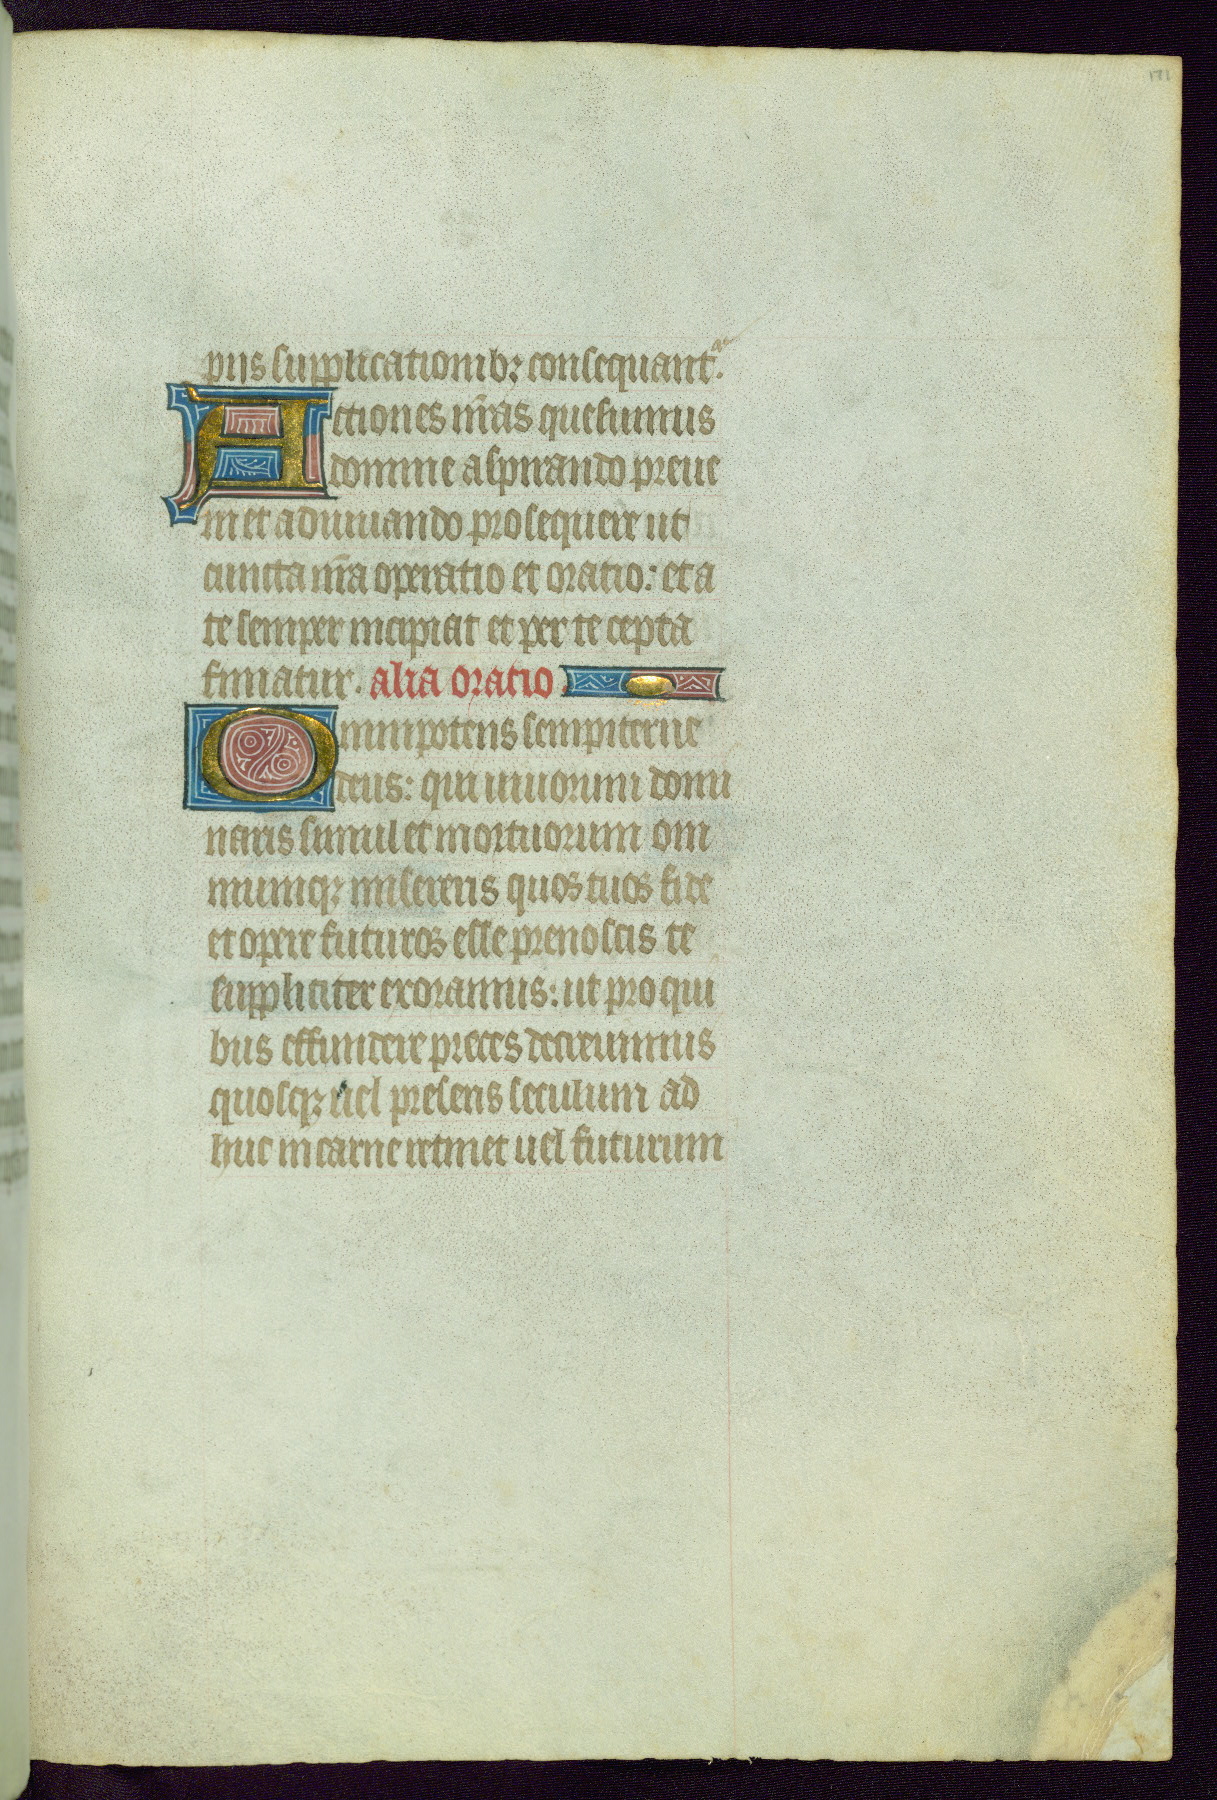 171
piis supplicationib; consequant^r.
Actiones nr̃as quesumus
domine aspirando preue
ni et adiuuando prosequere ut
cuncta nr̃a operatio et oratio: et a
te semper incipiat et per te cepta
finiatur. alia oratio.
Omnipotens sempiterne
deus: qui uiuorum domi
naris simul et mortuorum om
niumq; misereris quos tuos fide
et opere futuros esse prenoscis te
suppliciter exoramus: ut pro qui
bus effundere preces decreuimus
quosq; uel presens seculum ad
huc in carne retinet uel futurum